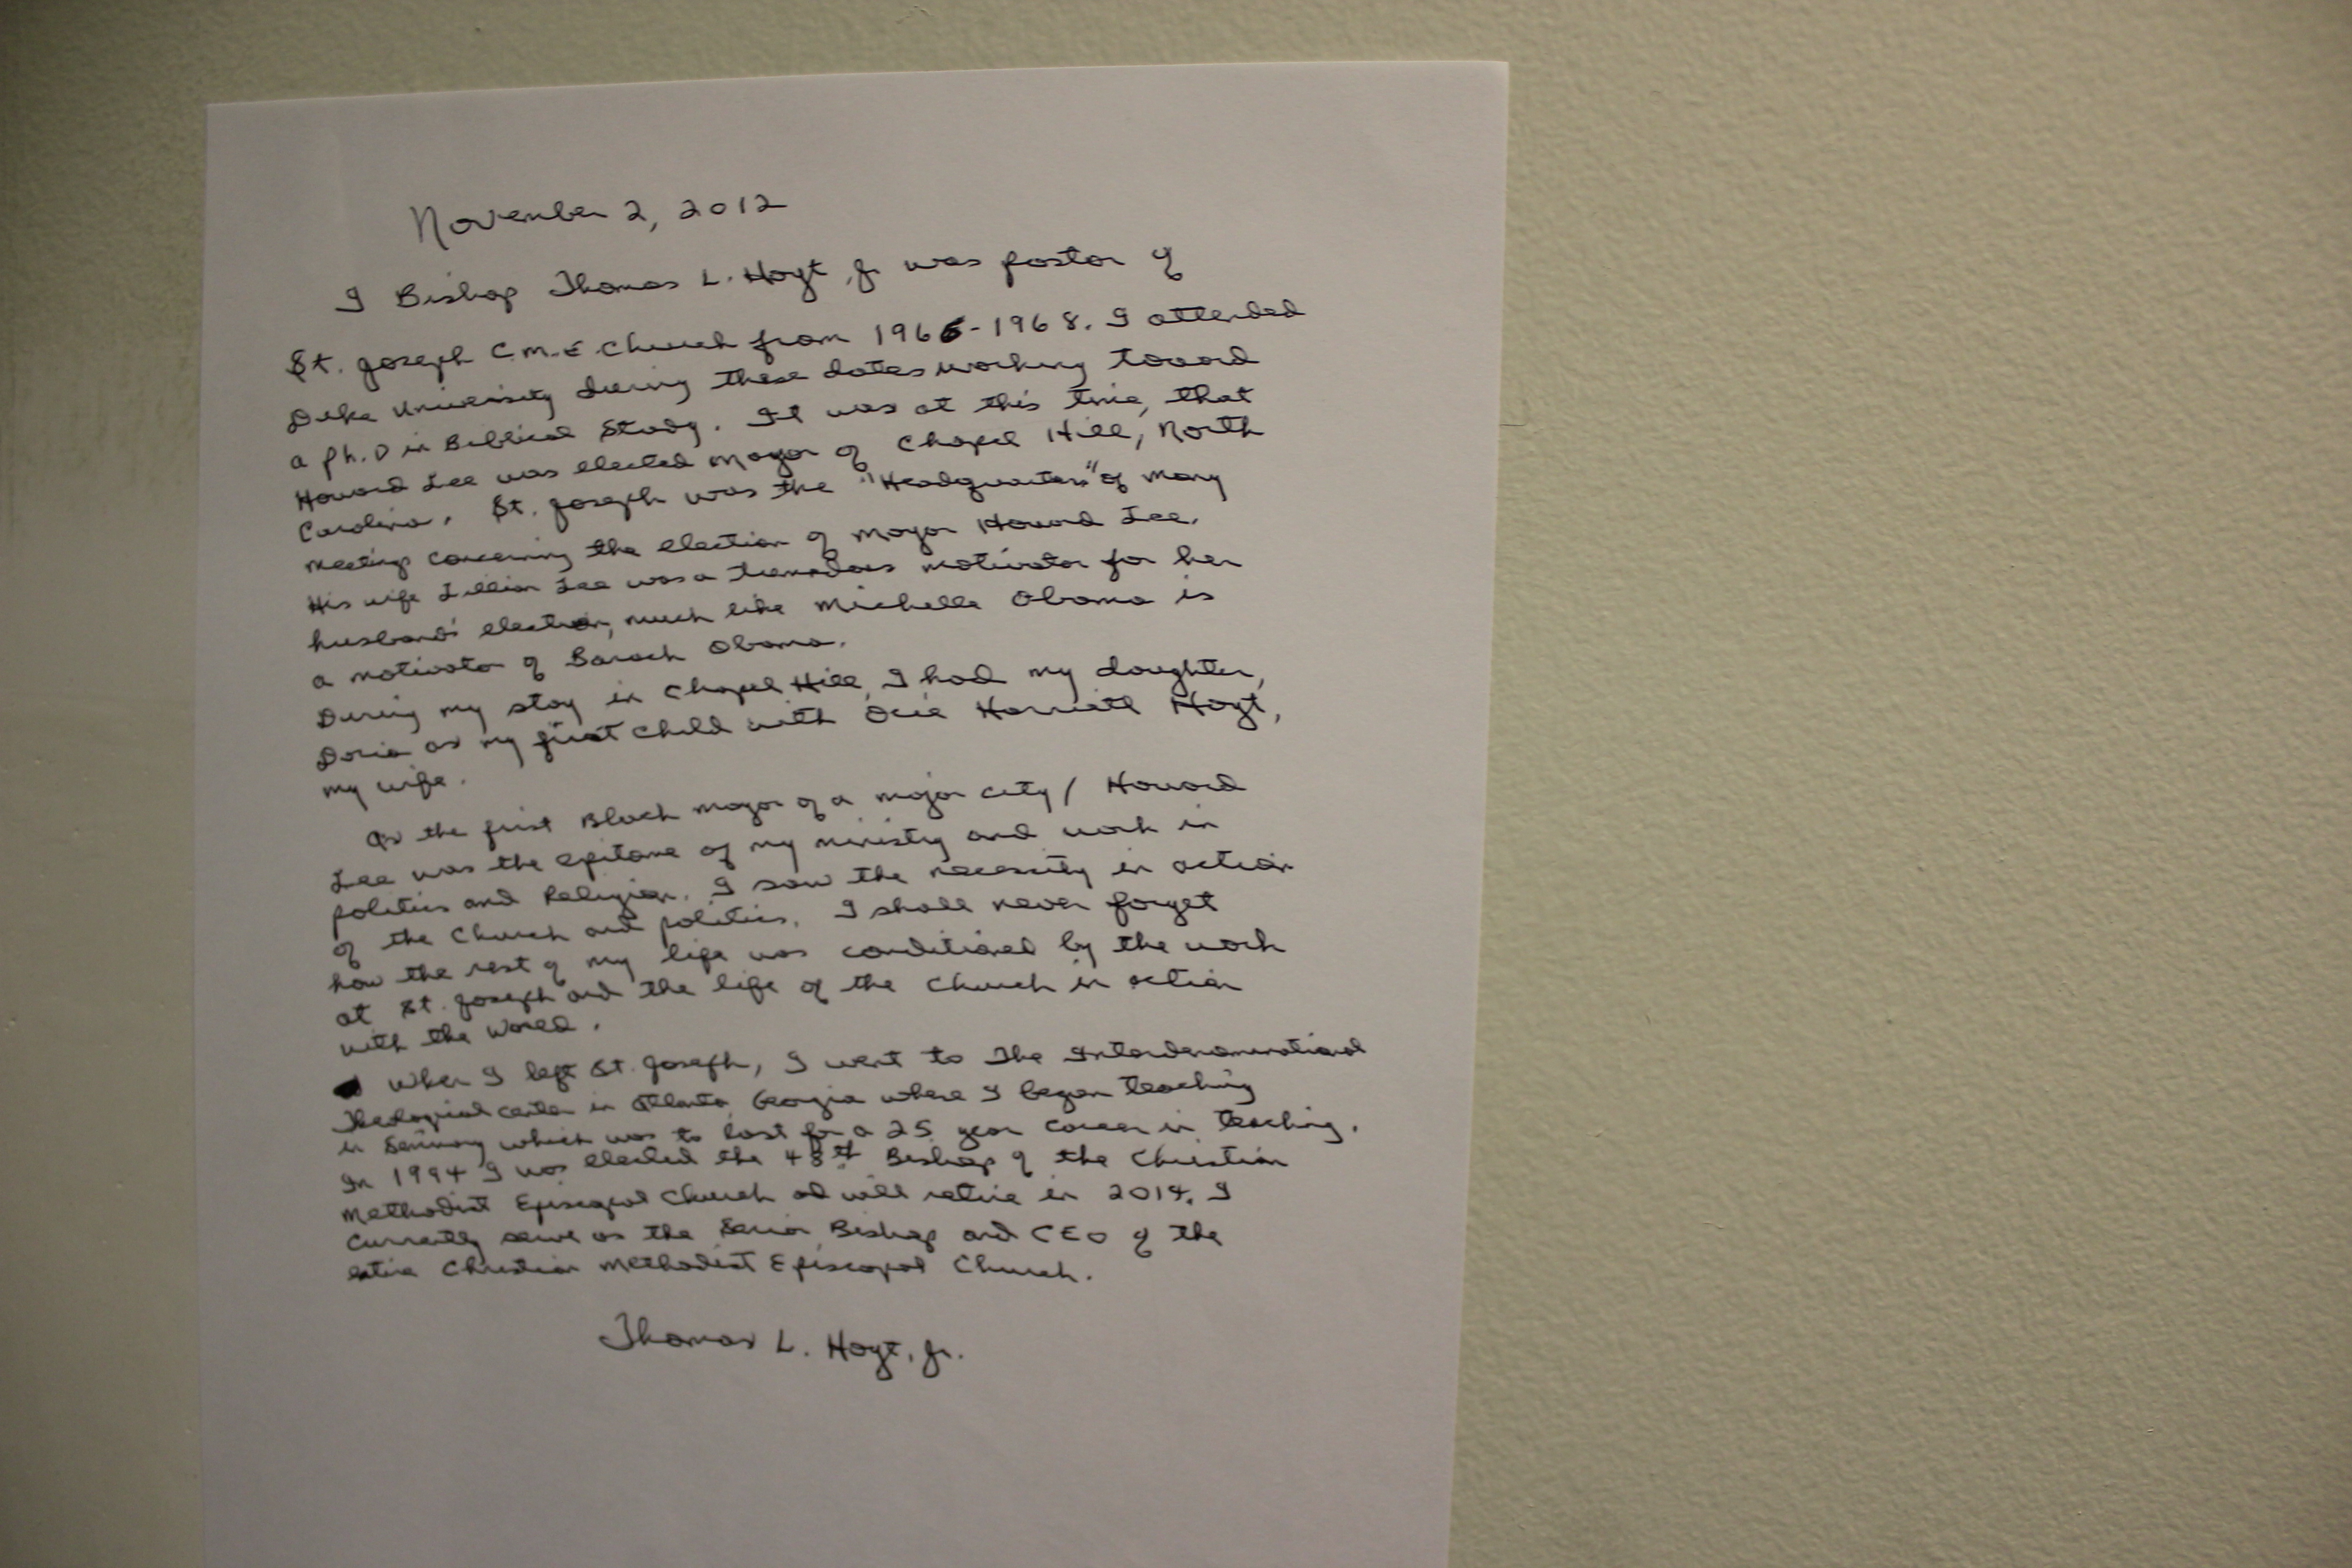 November 2, 2012
I Bishop Thomas L. Hoyt, Jr was pastor of
St. Joseph C.M.E Church from 1966-1968. I attended
Duke University during these dates working toward
a Ph.D in Biblical Study. It was at this time, that
Howard Lee was elected Mayor of Chapel Hill, North
Carolina. St. Joseph was the "Headquarters" of many
meetings concerning the election of Mayor Howard Lee.
His wife Lillian Lee was a tremendous motivator for her
husband's election, much like Michelle Obama is
a motivator of Barack Obama.
During my stay in Chapel Hill, I had my daughter,
Doria as my first child with Ocie Harriett Hoyt,
my wife.
As the first Black mayor of a major city / Howard
Lee was the epitome of my ministry and work in
politics and Religion. I saw the necessity in action
of the Church and politics. I shall never forget
how the rest of my life was conditioned by the work
at St. Joseph and the life of the Church in action
with the world.
When I left St. Joseph, I went to The Interdenominational
Theological Center in Atlanta, Georgia where I began teaching
in Seminary which was to last for a 25 year career in teaching.
In 1994 I was elected the 48th Bishop of the Christian
Methodist Episcopal Church and will retire in 2014. I
currently serve as the Senior Bishop and CEO of the
entire Christian Methodist Episcopal Church.
Thomas L. Hoyt, Jr.